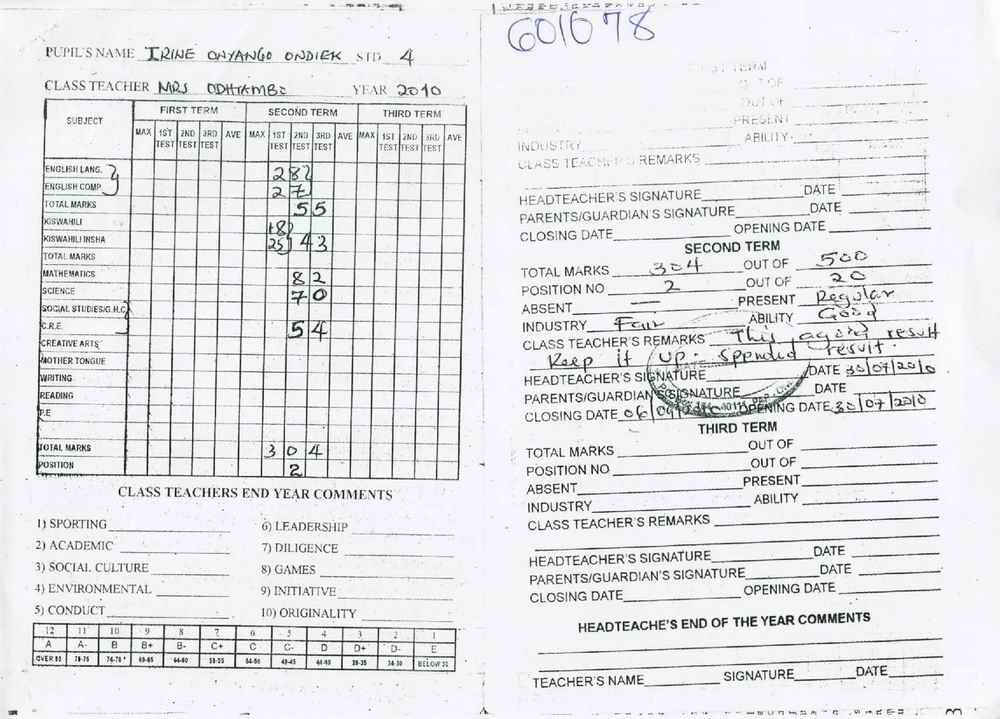 PUPIL'S NAME IRINE ONYANGO ONDIEK STD 4
CLASS TEACHER MRS ODHIAMBO YEAR 2010
SUBJECT FIRST TERM SECOND TERM THIRD TERM
MAX 1ST TEST 2ND TEST 3RD TEST AVE MAX 1ST TEST 2ND TEST 3RD TEST AVE MAX 1ST TEST 2ND TEST 3RD TEST AVE
ENGLISH LANG. 28
ENGLISH COMP. 27
TOTAL MARKS 55
KISWAHILI 18
KISWAHILI INSHA 25 43
TOTAL MARKS
MATHEMATICS 82
SCIENCE 70
SOCIAL STUDIES/G.H.C
C.R.E. 54
CREATIVE ARTS
MOTHER TONGUE
WRITING
READING
P.E
TOTAL MARKS 304
POSITION 2
CLASS TEACHERS END YEAR COMMENTS
1) SPORTING
2) ACADEMIC
3) SOCIAL CULTURE
4) ENVIRONMENTAL
5) CONDUCT
6) LEADERSHIP
7) DILIGENCE
8) GAMES
9) INITIATIVE
10) ORIGINALITY
12 11 10 9 8 7 6 5 4 3 2 1
A A- B B+ B- C+ C C- D D+ D- E
601078
FIRST TERM
OUT OF
OUT OF
PRESENT
INDUSTRY ABILITY
CLASS TEACHER'S REMARKS
HEADTEACHER'S SIGNATURE DATE
PARENTS/GUARDIAN'S SIGNATURE DATE
CLOSING DATE OPENING DATE
SECOND TERM
TOTAL MARKS 304 OUT OF 500
POSITION NO 2 OUT OF 20
ABSENT — PRESENT Regular
INDUSTRY Fair ABILITY Good
CLASS TEACHER'S REMARKS This a good result
Keep it up. Spended result.
HEADTEACHER'S SIGNATURE DATE 30/07/2010
PARENTS/GUARDIAN'S SIGNATURE DATE
CLOSING DATE 06/09/2010 OPENING DATE 30/07/2010
THIRD TERM
TOTAL MARKS OUT OF
POSITION NO OUT OF
ABSENT PRESENT
INDUSTRY ABILITY
CLASS TEACHER'S REMARKS
HEADTEACHER'S SIGNATURE DATE
PARENTS/GUARDIAN'S SIGNATURE DATE
CLOSING DATE OPENING DATE
HEADTEACHE'S END OF THE YEAR COMMENTS
TEACHER'S NAME SIGNATURE DATE